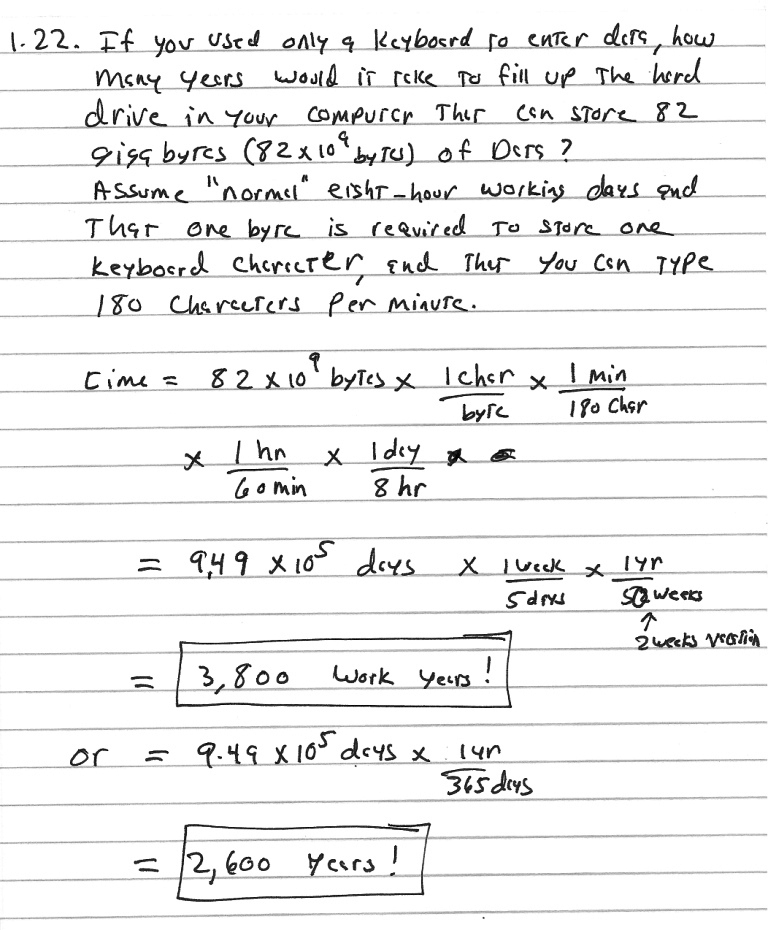 1.22. If you used only a keyboard to enter data, how
many years would it take to fill up the hard
drive in your computer that can store 82
gigabytes (82 x 10⁹ bytes) of Data?
Assume "normal" eight-hour working days and
That one byte is required to store one
keyboard character, and that you can type
180 characters per minute.
time = 82 x 10⁹ bytes x 1 char/byte x 1 min/180 char
x 1 hr/60 min x 1 day/8 hr
= 9.49 x 10⁵ days x 1 week/5 days x 1 yr/50 weeks
↑
2 weeks vacation
= 3,800 work years!
or = 9.49 x 10⁵ days x 1 yr/365 days
= 2,600 years!